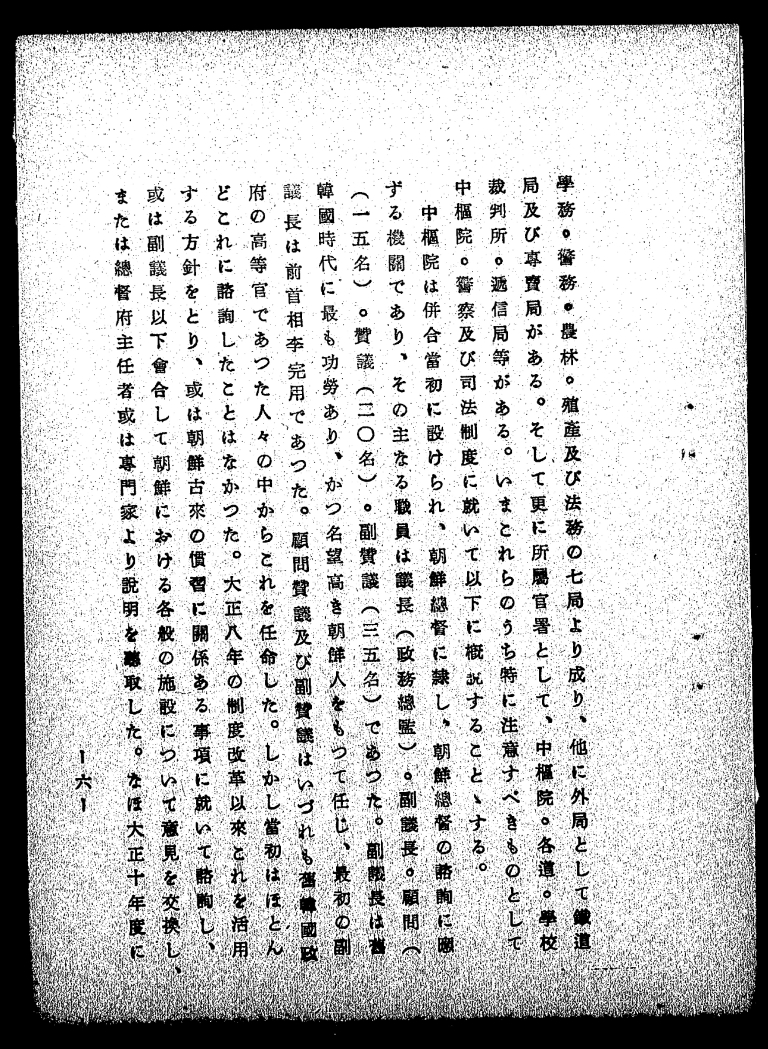 學務。警務。農林。殖產及び法務の七局より成り、他に外局として鐵道
局及び專賣局がある。そして更に所屬官署として、中樞院。各道。學校
裁判所。遞信局等がある。いまこれらのうち特に注意すべきものとして
中樞院。警察及び司法制度に就いて以下に槪說することゝする。
中樞院は併合當初に設けられ、朝鮮總督に隷し、朝鮮總督の諮詢に應
ずる機關であり、その主なる職員は議長（政務總監）。副議長。顧問（
（一五名）。贊議（二〇名）。副贊議（三五名）であつた。副議長は舊
韓國時代に最も功勞あり、かつ名望高き朝鮮人をもつて任じ、最初の副
議長は前首相李完用であつた。顧問贊議及び副贊議はいづれも舊韓國政
府の高等官であつた人々の中からこれを任命した。しかし當初はほとん
どこれに諮詢したことはなかつた。大正八年の制度改革以來これを活用
する方針をとり、或は朝鮮古來の慣習に關係ある事項に就いて諮詢し、
或は副議長以下會合して朝鮮における各般の施設について意見を交換し、
または總督府主任者或は專門家より說明を聽取した。なほ大正十年度に
ー六ー